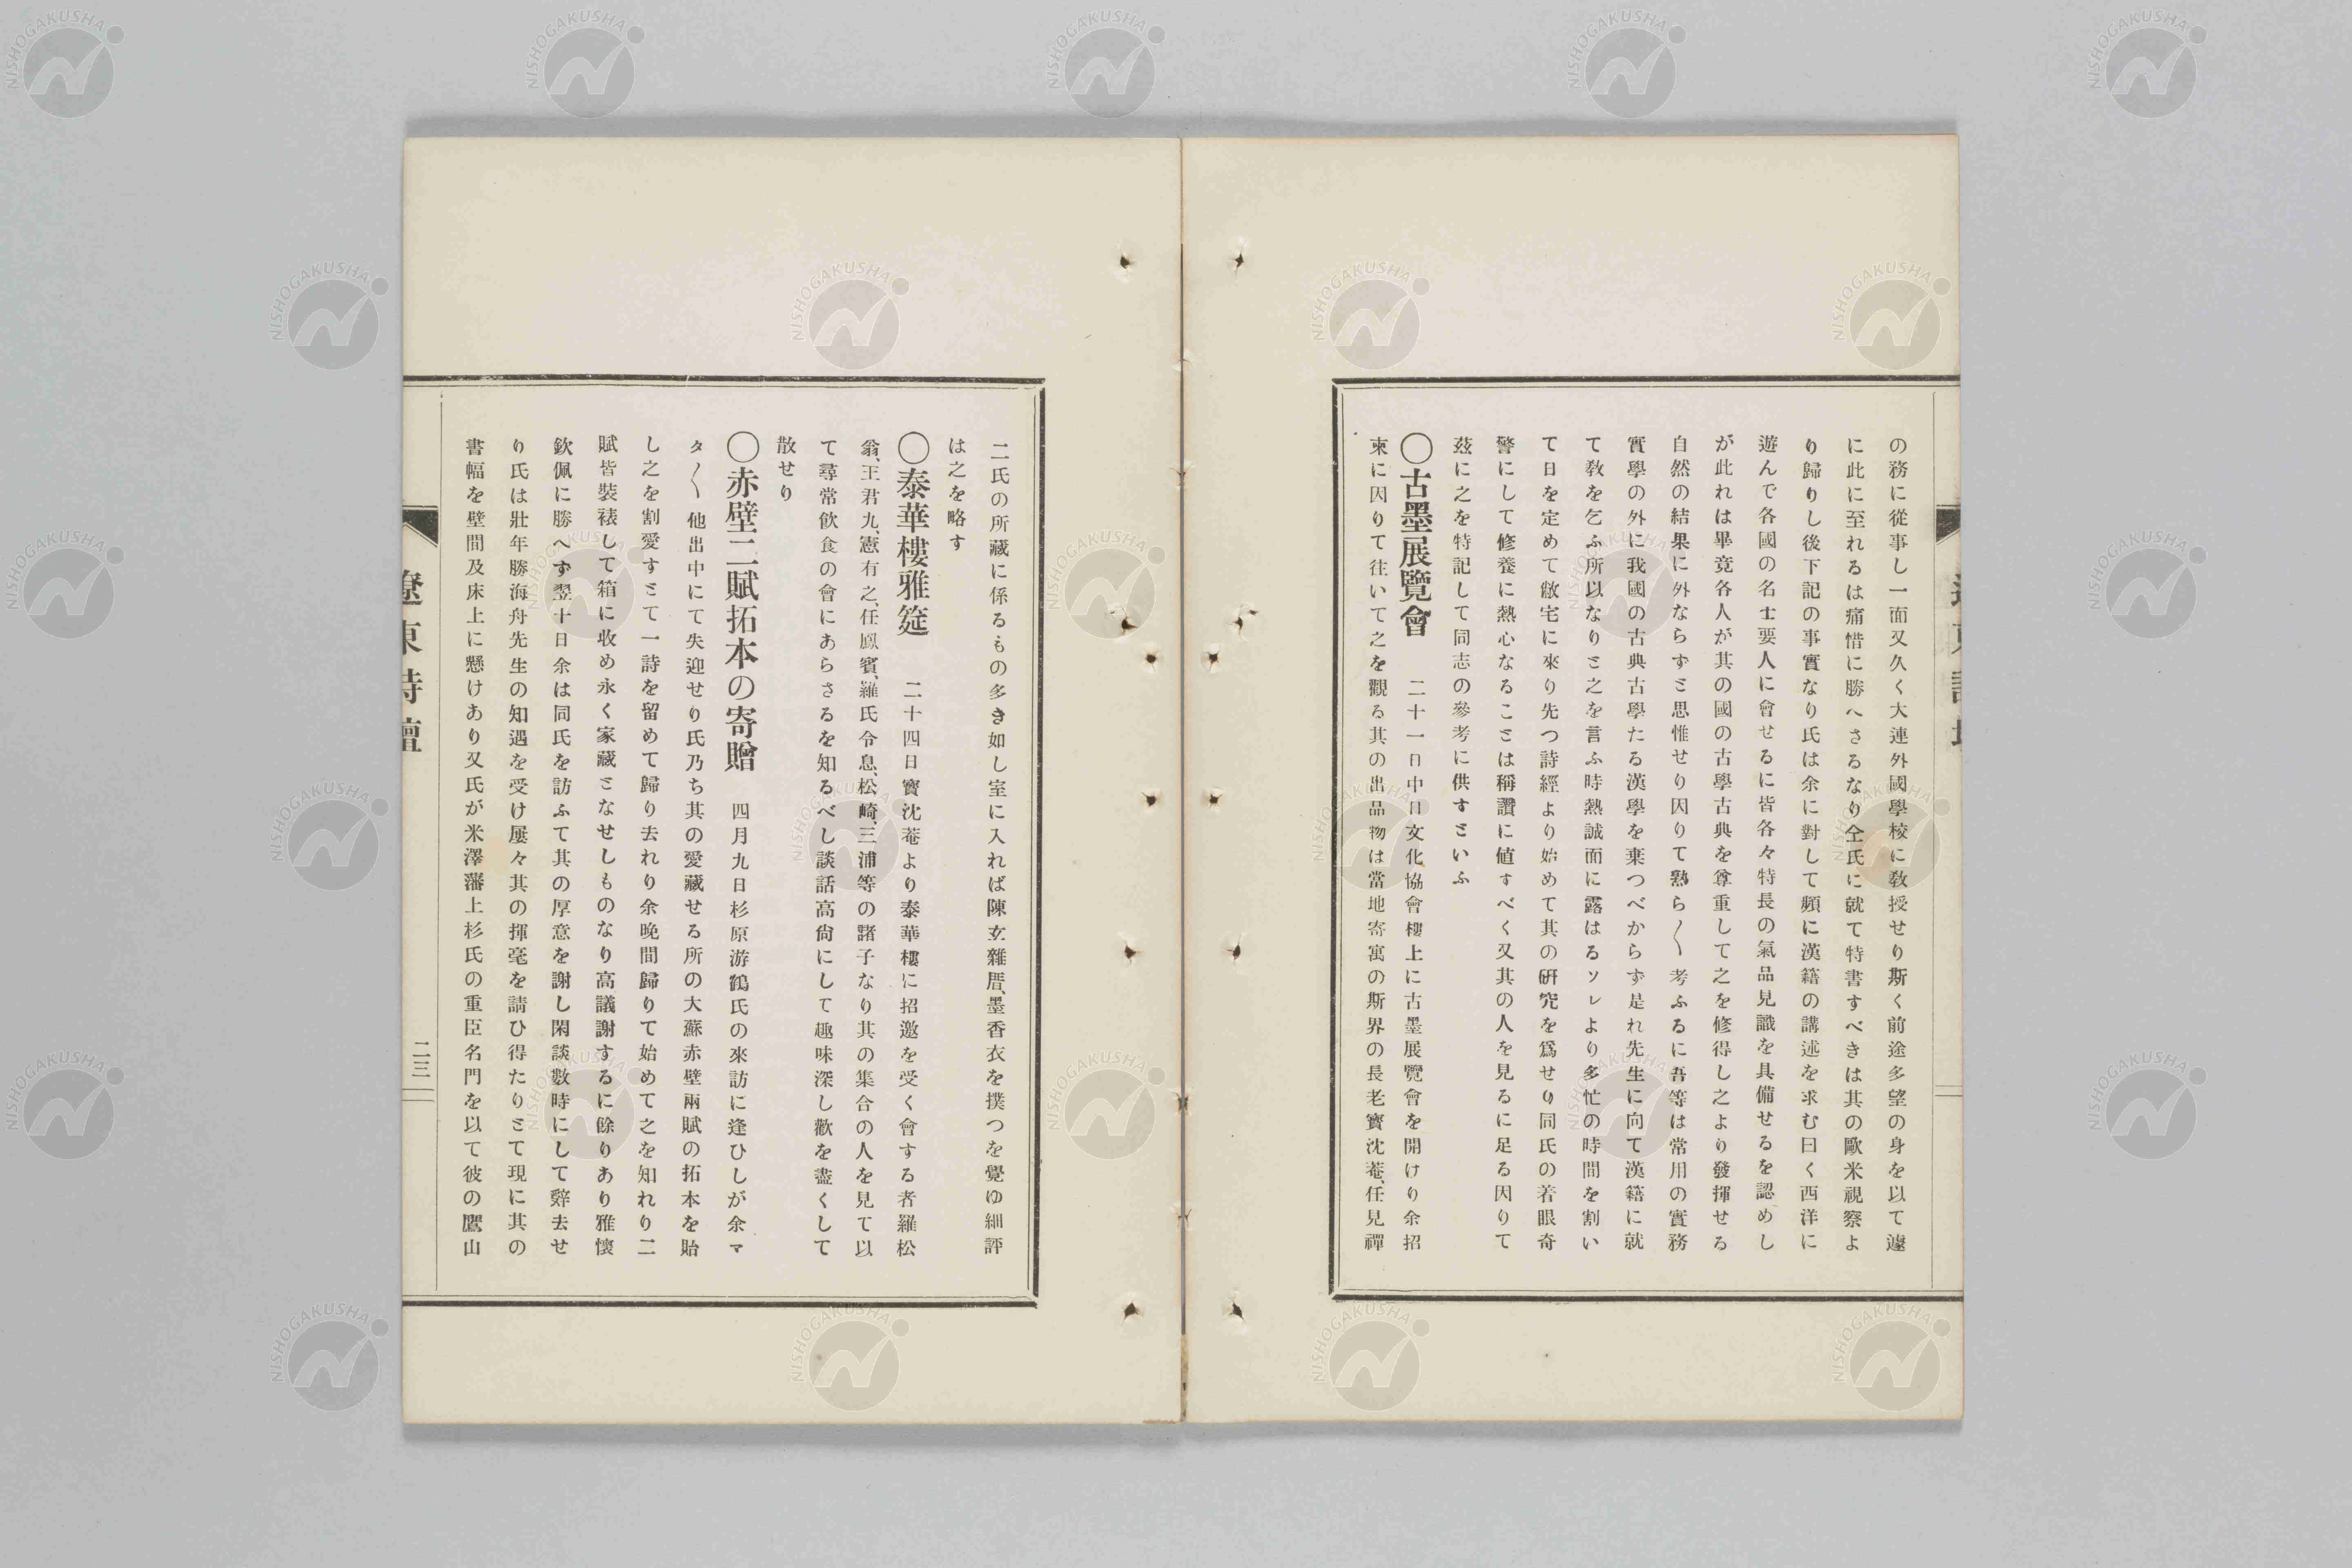 の務に從事し一面又久く大連外國學校に敎授せり斯く前途多望の身を以て遽
に此に至れるは痛惜に勝へさるなり仝氏に就て特書すべきは其の歐米視察よ
り歸りし後下記の事實なり氏は余に對して頻に漢籍の講述を求む曰く西洋に
遊んで各國の名士要人に會せるに皆各々特長の氣品見識を具備せるを認めし
が此れは畢竟各人が其の國の古學古典を尊重して之を修得し之より發揮せる
自然の結果に外ならずと思惟せり因りて熟ら〱考ふるに吾等は常用の實務
實學の外に我國の古典古學たる漢學を棄つべからず是れ先生に向て漢籍に就
て敎を乞ふ所以なりと之を言ふ時熱誠面に露はるソレより多忙の時間を割い
て日を定めて敝宅に來り先つ詩經より始めて其の硏究を爲せり同氏の着眼奇
警にして修養に熱心なることは稱讚に値すべく又其の人を見るに足る因りて
玆に之を特記して同志の參考に供すといふ
〇古墨展覽會　二十一日中日文化協會樓上に古墨展覽會を開けり余招
柬に因りて往いて之を觀る其の出品物は當地寄寓の斯界の長老寶沈菴、任見禪
二氏の所藏に係るもの多き如し室に入れば陳玄雜厝、墨香衣を撲つを覺ゆ細評
は之を略す
〇泰華樓雅筵　二十四日寶沈菴より泰華樓に招邀を受く會する者羅松
翁、王君九、憲有之、任鳳賓、羅氏令息、松崎、三浦等の諸子なり其の集合の人を見て以
て尋常飮食の會にあらさるを知るべし談話高尙にして趣味深し歡を盡くして
散せり
〇赤壁二賦拓本の寄贈　四月九日杉原游鶴氏の來訪に逢ひしが余マ
タ〱他出中にて失迎せり氏乃ち其の愛藏せる所の大蘇赤壁兩賦の拓本を貽
し之を割愛すとて一詩を留めて歸り去れり余晚間歸りて始めて之を知れり二
賦皆裝裱して箱に收め永く家藏となせしものなり高議謝するに餘りあり雅懷
欽佩に勝へず翌十日余は同氏を訪ふて其の厚意を謝し閑談數時にして辭去せ
り氏は壯年勝海舟先生の知遇を受け屢々其の揮毫を請ひ得たりとて現に其の
書幅を壁間及床上に懸けあり又氏が米澤藩上杉氏の重臣名門を以て彼の鷹山
遼東詩壇
二三
NISHOGAKUSHA